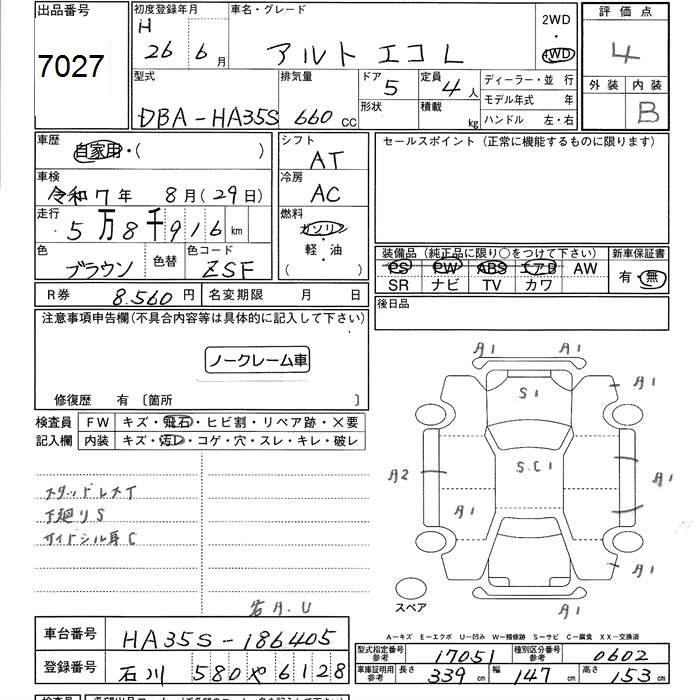 出品番号
7027
初度登録年月
H
26 6月
車名・グレード
アルト エコ L
2WD
・
4WD
評価点
4
外装 内装
B
型式
DBA-HA35S
排気量
660 CC
ドア
5
形状
定員
4人
積載
kg
ディーラー・並行
モデル年式 年
ハンドル 左・右
車歴
自家用・( )
車検
令和7年 8月(29日)
走行
5万8千916km
色
ブラウン
色替
色コード
ZSF
シフト
AT
冷房
AC
燃料
ガソリン
軽・油
( )
セールスポイント(正常に機能するものに限ります)
装備品(純正品に限り○をつけて下さい)
PS PW ABS エアB AW
SR ナビ TV カワ
新車保証書
有・無
後日品
R券 8.560円
名変期限 月 日
注意事項申告欄(不具合内容等は具体的に記入して下さい)
ノークレーム車
修復歴 有〔箇所 〕
検査員
記入欄
FW キズ・飛石・ヒビ割・リペア跡・×要
内装 キズ・汚レ・コゲ・穴・スレ・キレ・破レ
スタッドレスT
下廻りS
サイドシル耳C
若A.U
A1 A1
S1 A1
S.C1
A2 A1
A1
A1
A1
スペア
A-キズ E-エクボ U-凹み W-補修跡 S-サビ C-腐食 XX-交換済
車台番号
HA35S-186405
登録番号
石川 580 や 6128
型式指定番号
参考
17051
種別区分番号
参考
0602
車庫証明用
参考
長さ 339cm 幅 147cm 高さ 153cm
検査員